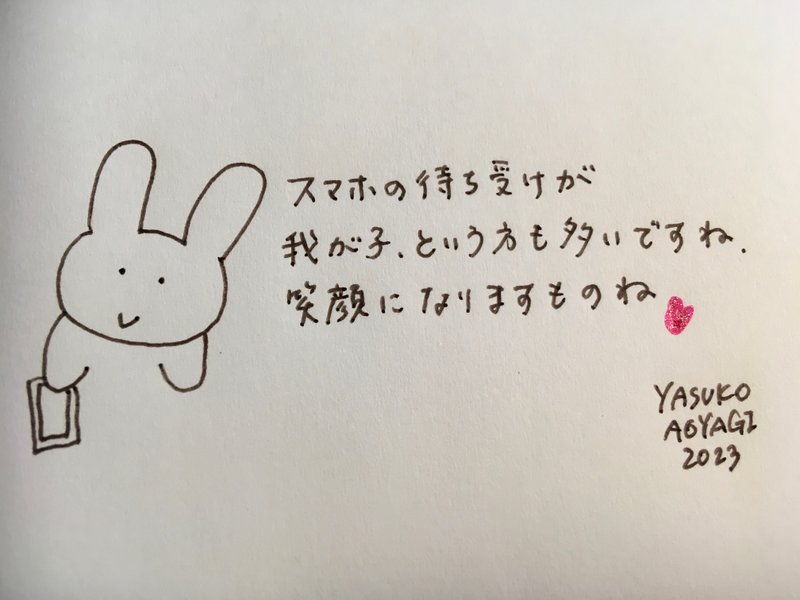 スマホの待ち受けが
我が子、という方も多いですね、
笑顔になりますものね
YASUKO
AOYAGI
2023